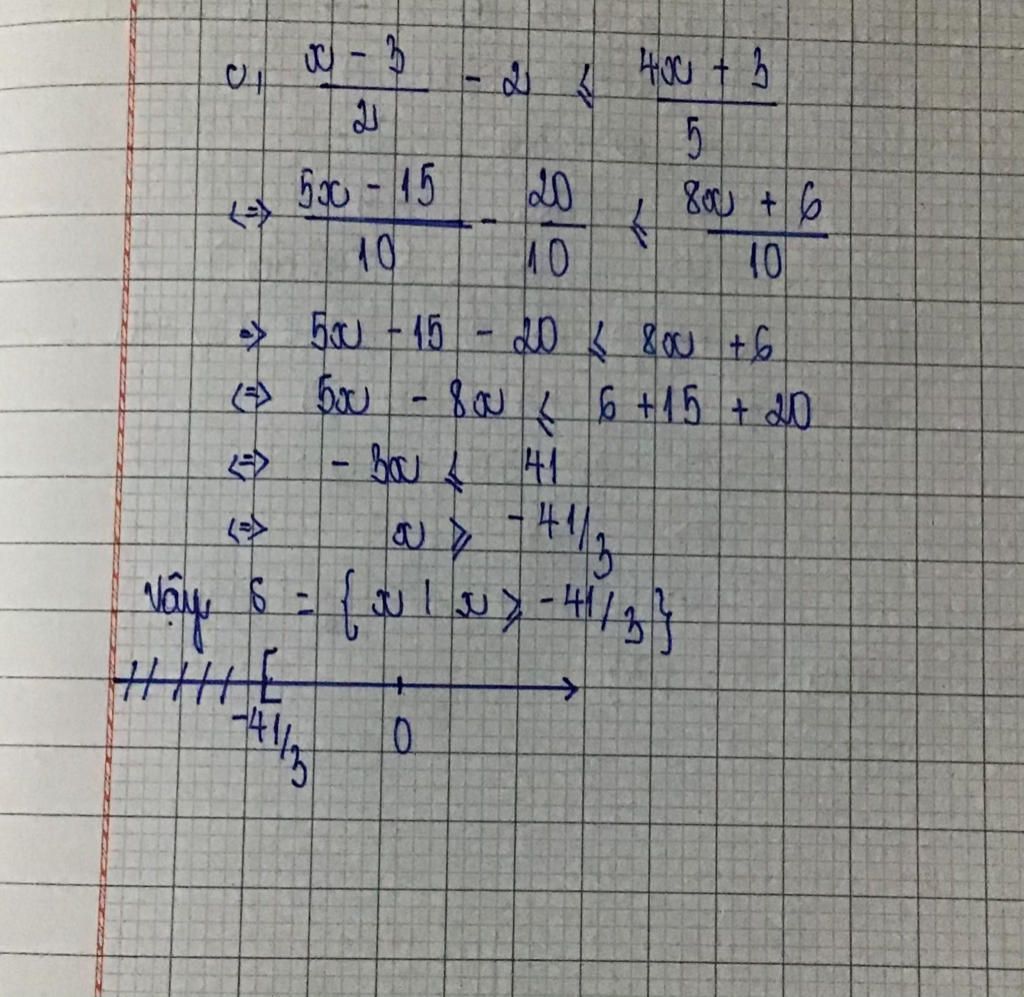 c, (x - 3)/2 - 2 ≤ (4x + 3)/5
<=> (5x - 15)/10 - 20/10 ≤ (8x + 6)/10
=> 5x - 15 - 20 ≤ 8x + 6
<=> 5x - 8x ≤ 6 + 15 + 20
<=> - 3x ≤ 41
<=> x ≥ -41/3
Vậy S = { x | x ≥ -41/3 }
-41/3 0